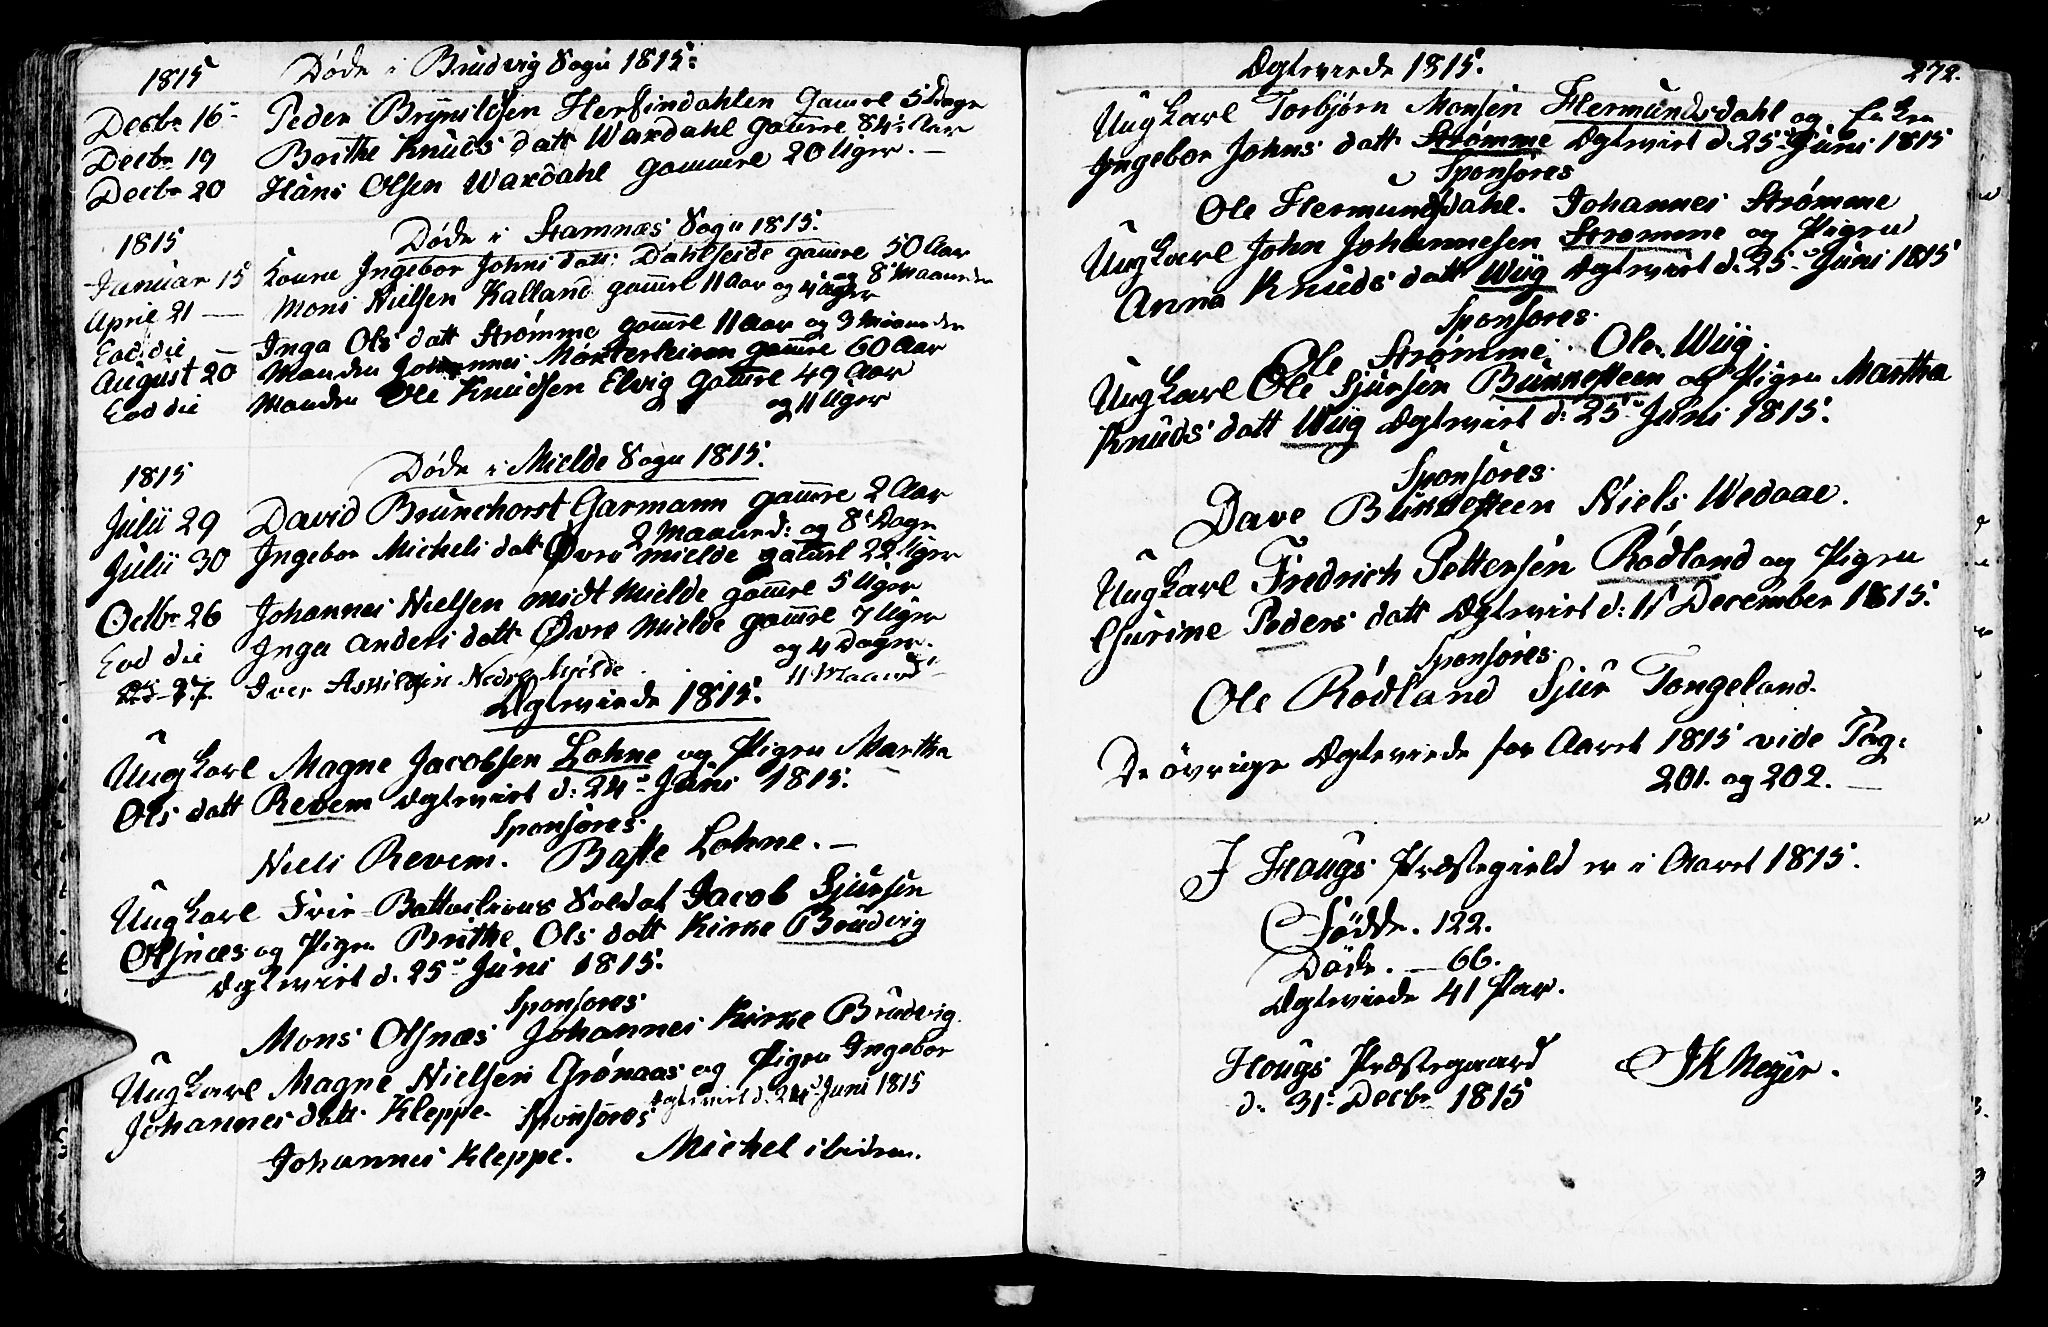 1815 Døde i Brudvig Sogn 1815:
Decbr 16 Peder Brynildsen Herfindahlen gammel 5 Dage
Decbr 19 Brithe Knuds datt Waxdahl gamml 84½ Aar
Decbr 20 Hans Olsen Waxdahl gammel 20 Uger. —
1815 Døde i Stamnæs Sogn 1815.
Januar 15 Konne Ingebor Johns datt: Dahlseide gaml 50 Aar
og 8 Maaneder
April 21 — Mons Nielsen Kalland gaml 11 Aar og 4 Uger
Eod: die — Inga Ols datt Strømme gaml 11 Aar og 3 Maaneder
August 20 Manden Johannes Mørterleiren gaml 60 Aar
Eod die Manden Ole Knudsen Elvig gaml 49 Aar
og 11 Uger
1815 Døde i Mielde Sogn 1815.
Julii 29 David Brunchorst Garmann gaml 2 Aar
2 Maaned: og 8 Dage
Julii 30 Ingebor Michels datt Øvre Mielde gaml 22 Uger
Octbr 26 Johannes Nielsen midt Mielde gaml 5 Uger
Eod die Inga Anders datt Øvre Mielde gaml 7 Uger
og 4 Dager.
27. Iver Askildsen Nedre Mjelde 11 Maaned
Ægteviede 1815.
Ung Karl Magne Jacobsen Lohne og Pigen Martha
Ols datt Revem Ægteviet d: 24 Juni 1815.
Sponsores
Niels Revem. Baste Lohne. —
Ung Karl Frie-Battailions Soldat Jacob Sjursen
Olsnæs og Pigen Brithe Ols datt Kirke Brudvig
Ægteviet d. 25 Juni 1815.
Sponsores
Mons Olsnæs Johannes Kirke Brudvig.
Ung Karl Magne Nielsen Grønaas og Pigen Ingebor
Johannes datt Kleppe. Ægteviet d: 24 Juni 1815
Sponsores
Johannes Kleppe. Michel ibidem.
Ægteviede 1815. 272.
Ung Karl Torbjørn Monsen Hermundsdahl og Enken
Ingebor Johns datt Strømme Ægteviet d. 25 Juni 1815
Sponsores
Ole Hermundsdahl. Johannes Strømme
Ung Karl John Johannesen Strømme og Pigen
Anna Knuds datt Wiig Ægteviet d: 25 Juni 1815
Sponsores.
Ole Strømme. Ole Wiig.
Ung Karl Ole Sjursen Bunnesteen og Pigen Martha
Knuds datt Wiig Ægteviet d: 25 Juni 1815.
Sponsores
Dave Bunnesteen Niels Wedaae.
Ung Karl Fredrich Pettersen Rødland og Pigen
Gurine Peders datt Ægteviet d: 11 December 1815.
Sponsores
Ole Rødland Sjur Tongeland.
De øvrige Ægteviede for Aaret 1815 vide Pag:
201. og 202. —
I Hougs Præstegield er i Aaret 1815.
Fødde. 122.
Døde. — 66.
Ægteviede 41 Par.
Hougs Præstegaard
d. 31 Decbr 1815
JK Meyer.